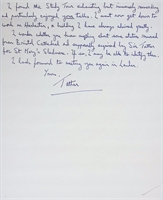 I found the Study Tour exhausting but immensely rewarding
and particularly enjoyed your talks. I must now get down to
work on Harlaxton, a building I have always adored greatly.
I wonder whether you know anything about some statues removed
from Bristol Cathedral and supposedly acquired by Sir Tatton
for St Mary's Sledmere. If so, I may be able to identify them.
I look forward to meeting you again in London.
Yours,